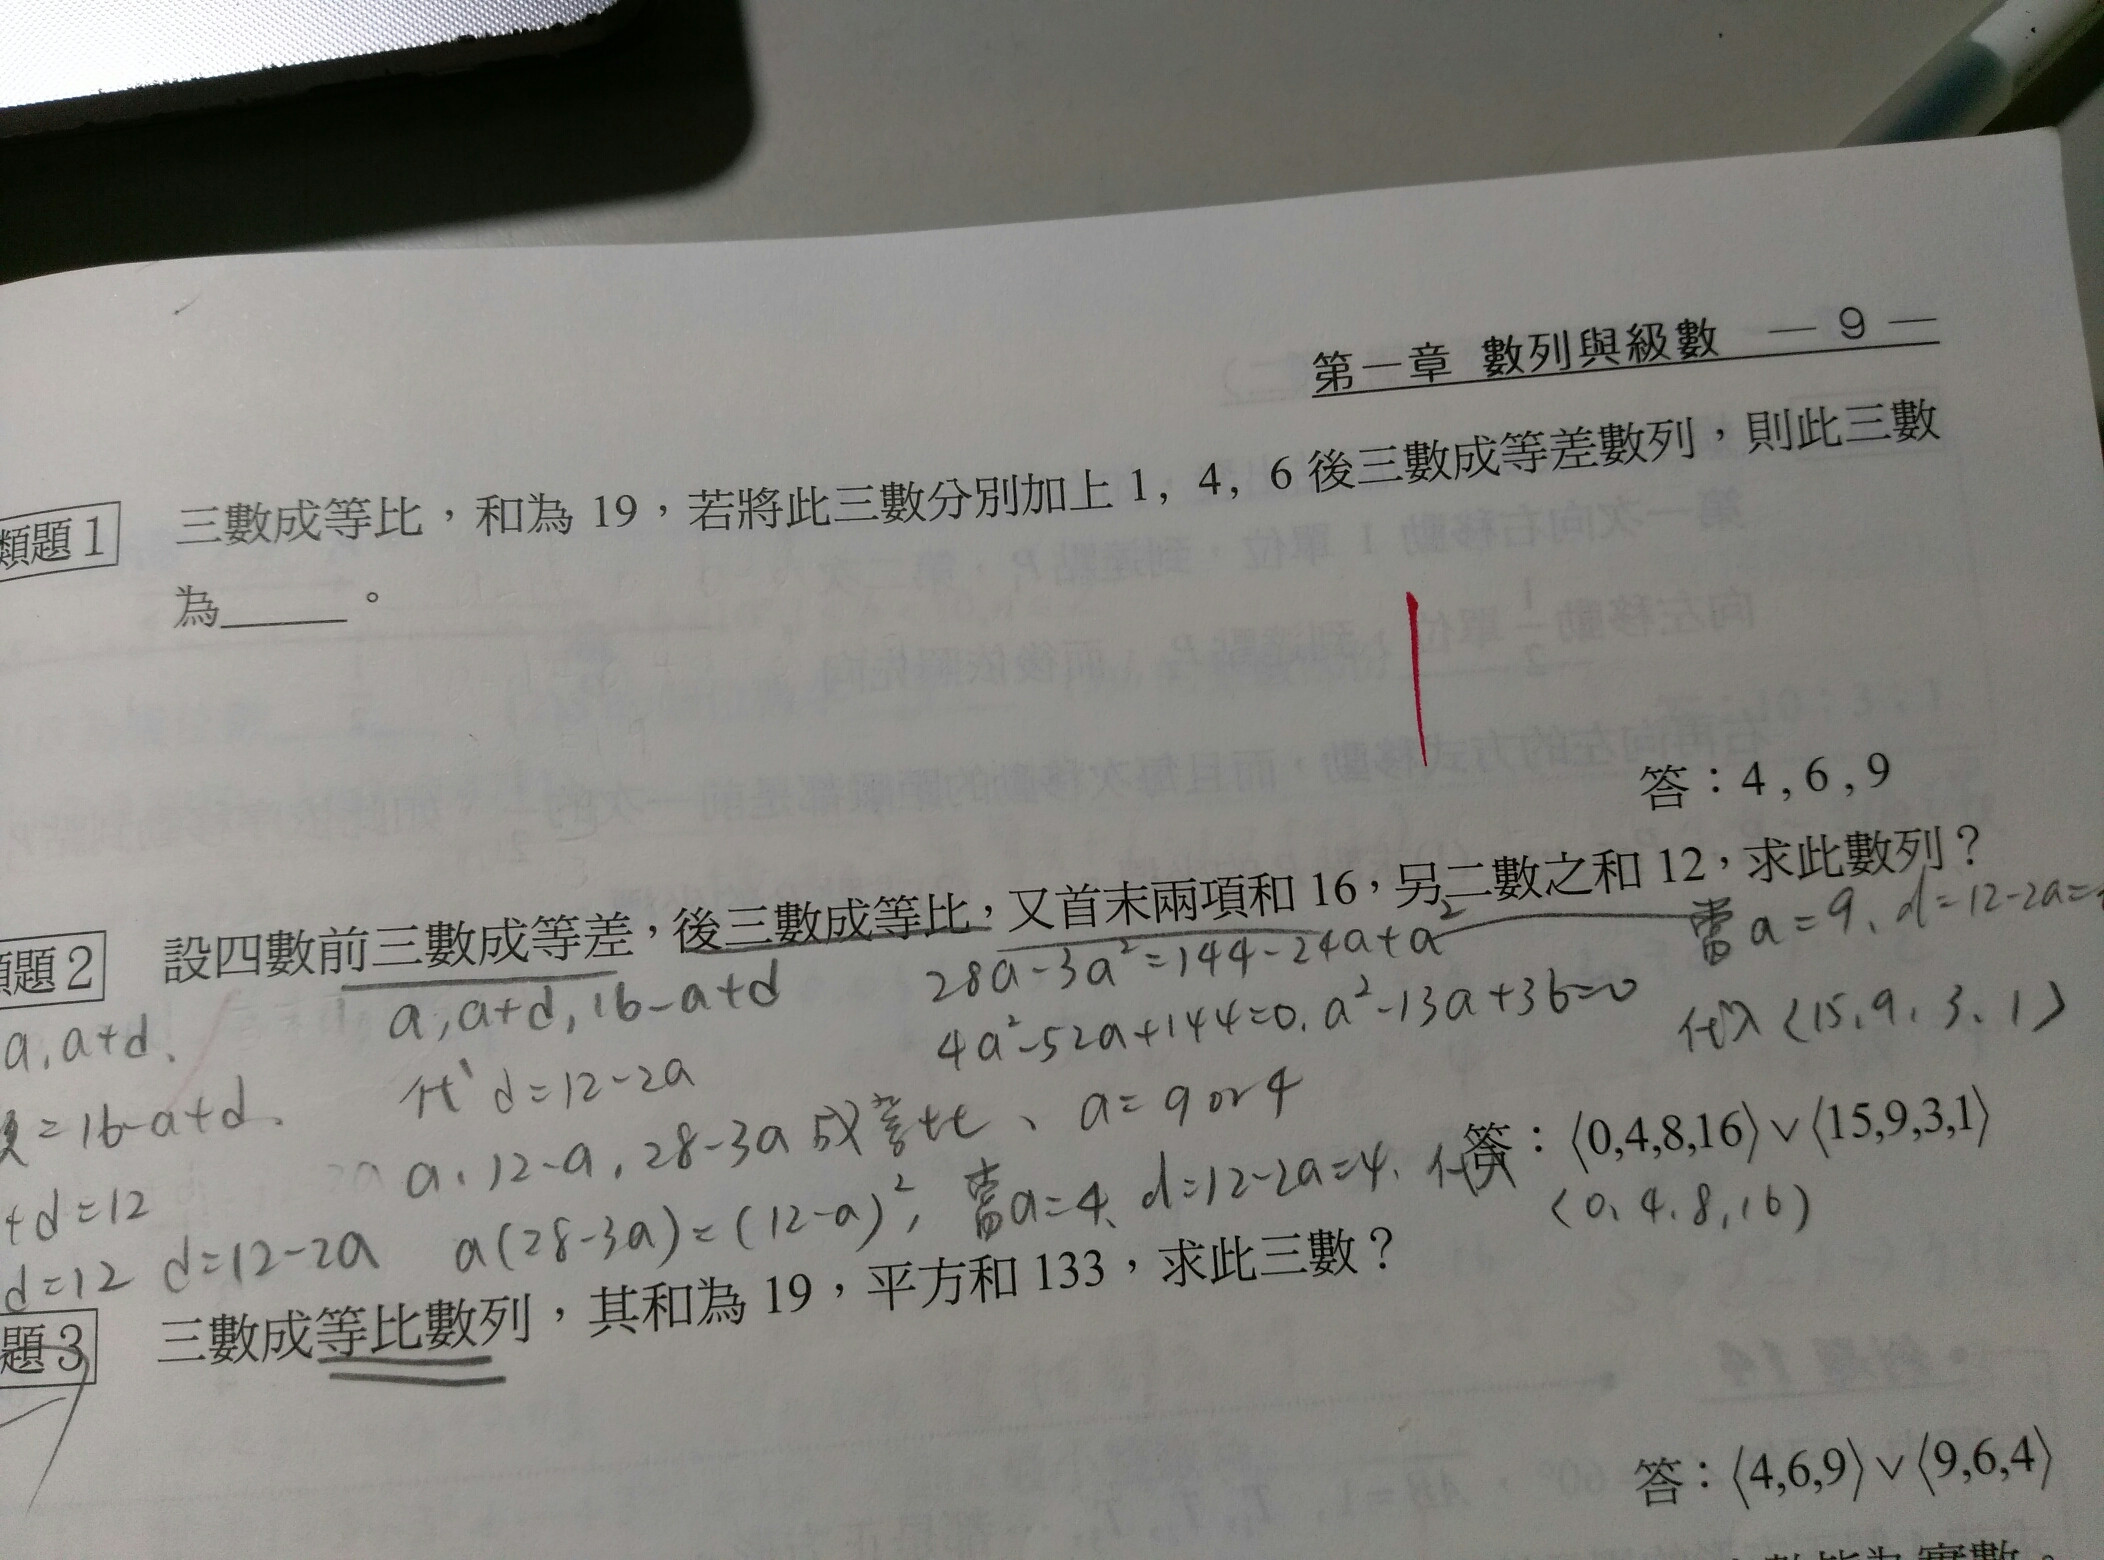 第一章 數列與級數 — 9 —
類題1 三數成等比，和為 19，若將此三數分別加上 1, 4, 6 後三數成等差數列，則此三數
為_____。
答：4 , 6 , 9
題2 設四數前三數成等差，後三數成等比，又首末兩項和 16，另二數之和 12，求此數列？
a, a+d, a, a+d, 16-a+d 28a-3a²=144-24a+a² 當a=9、d=12-2a=
=16-a+d 代 d=12-2a 4a²-52a+144=0, a²-13a+36=0 代入 <15, 9, 3, 1>
+d=12 a, 12-a, 28-3a 成等比、a=9 or 4
答：⟨0,4,8,16⟩∨⟨15,9,3,1⟩
d=12 d=12-2a a(28-3a)=(12-a)², 當a=4、d=12-2a=4. 代入 <0, 4, 8, 16>
題3 三數成等比數列，其和為 19，平方和 133，求此三數？
答：⟨4,6,9⟩∨⟨9,6,4⟩